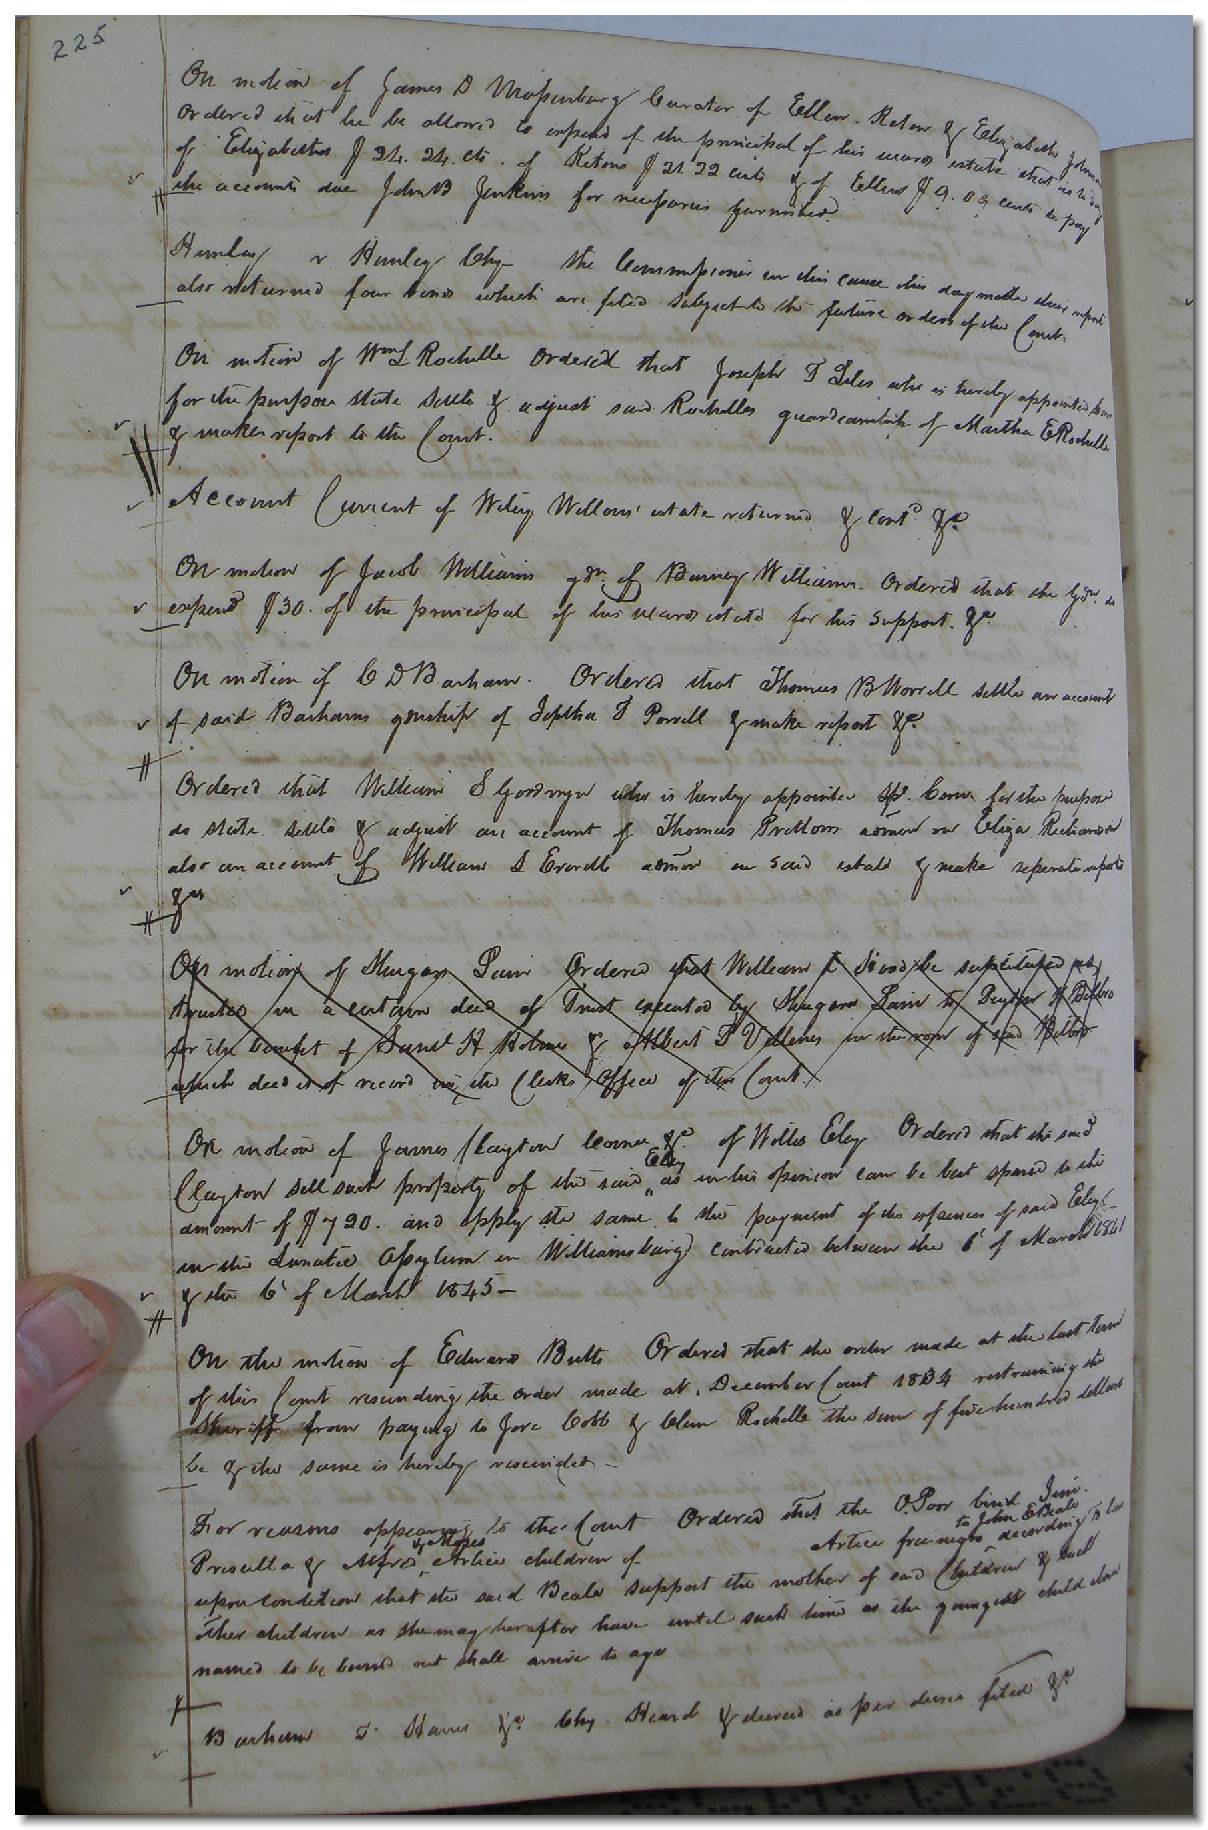 225
On motion of James D Massenburg Curator of Ellen. Reton & Elizabeth Johnson
ordered that he be allowed to expend of the principal of his wards estate that is to say
of Elizabeths $24. 24. cts. of Retons $21 22 cents & of Ellens $9. 09 cents to pay
the accounts due John B Jenkins for necessaries furnished.
Hunley v Hunley Chy The Commissioner in this cause this day made their report
also returned four bonds which are filed subject to the future orders of the Court.
On motion of Wm L Rochelle Ordered that Joseph T Liles who is hereby appointed
for the purpose state settle & adjust said Rochelles guardianship of Martha E Rochelle
& make report to the Court.
Account Current of Wiley Willons' estate returned & Contd. &c.
On motion of Jacob Williams gdn. of Barney Williams. Ordered that the Gdn. do
expend $30. of the principal of his wards estate for his support. &c
On motion of C D Barham. Ordered that Thomas B Worrell settle an account
of said Barhams gnship of Jeptha T Porrell & make report &c.
Ordered that William S Goodwyn who is hereby appointed sp. Comr. for the purpose
do state settle & adjust an account of Thomas Prettows admor on Eliza Richardson
also an account of William S Everett admor on said estate & make seperate reports
&c
On motion of Shugars Lain Ordered that William Hood be substituted as
trustee in a certain deed of Trust executed by Shugars Lain to Peyton
for the benefit of Saml H Holmes & Albert T in the room of said
which deed is of record in the Clerks Office of this Court.
On motion of James Clayton Comee &c of Willis Eley Ordered that the said
Eley
Clayton sell such property of the said as in his opinion can be best spared to the
amount of $790. and apply the same to the payment of the expences of said Eley
in the Lunatic Assylum in Williamsburg contracted between the 6 of March 1841
& the 6 of March 1845 -
On the motion of Edward Butts Ordered that the order made at the last term
of this Court rescinding the order made at December Court 1834 restraining the
Sheriff from paying to Jore Cobb & Clem Rochelle the sum of five hundred dollars
be & the same is hereby rescinded -
For reasons appearing to the Court Ordered that the O. Poor bind Jim.
to John E Beale
Priscilla & Alfred Artice children of Artice free negro according to law
upon condition that the said Beale support the mother of said Children & such
other children as she may herafter have until such time as the youngest child above
named to be bound out shall arrive to age
Barham v. Harris &c Chy. Heard & decreed as per decree filed &c